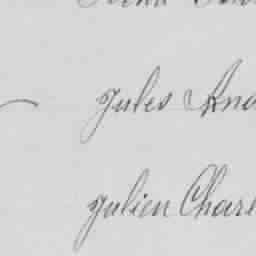 Jules And
Julien Charl